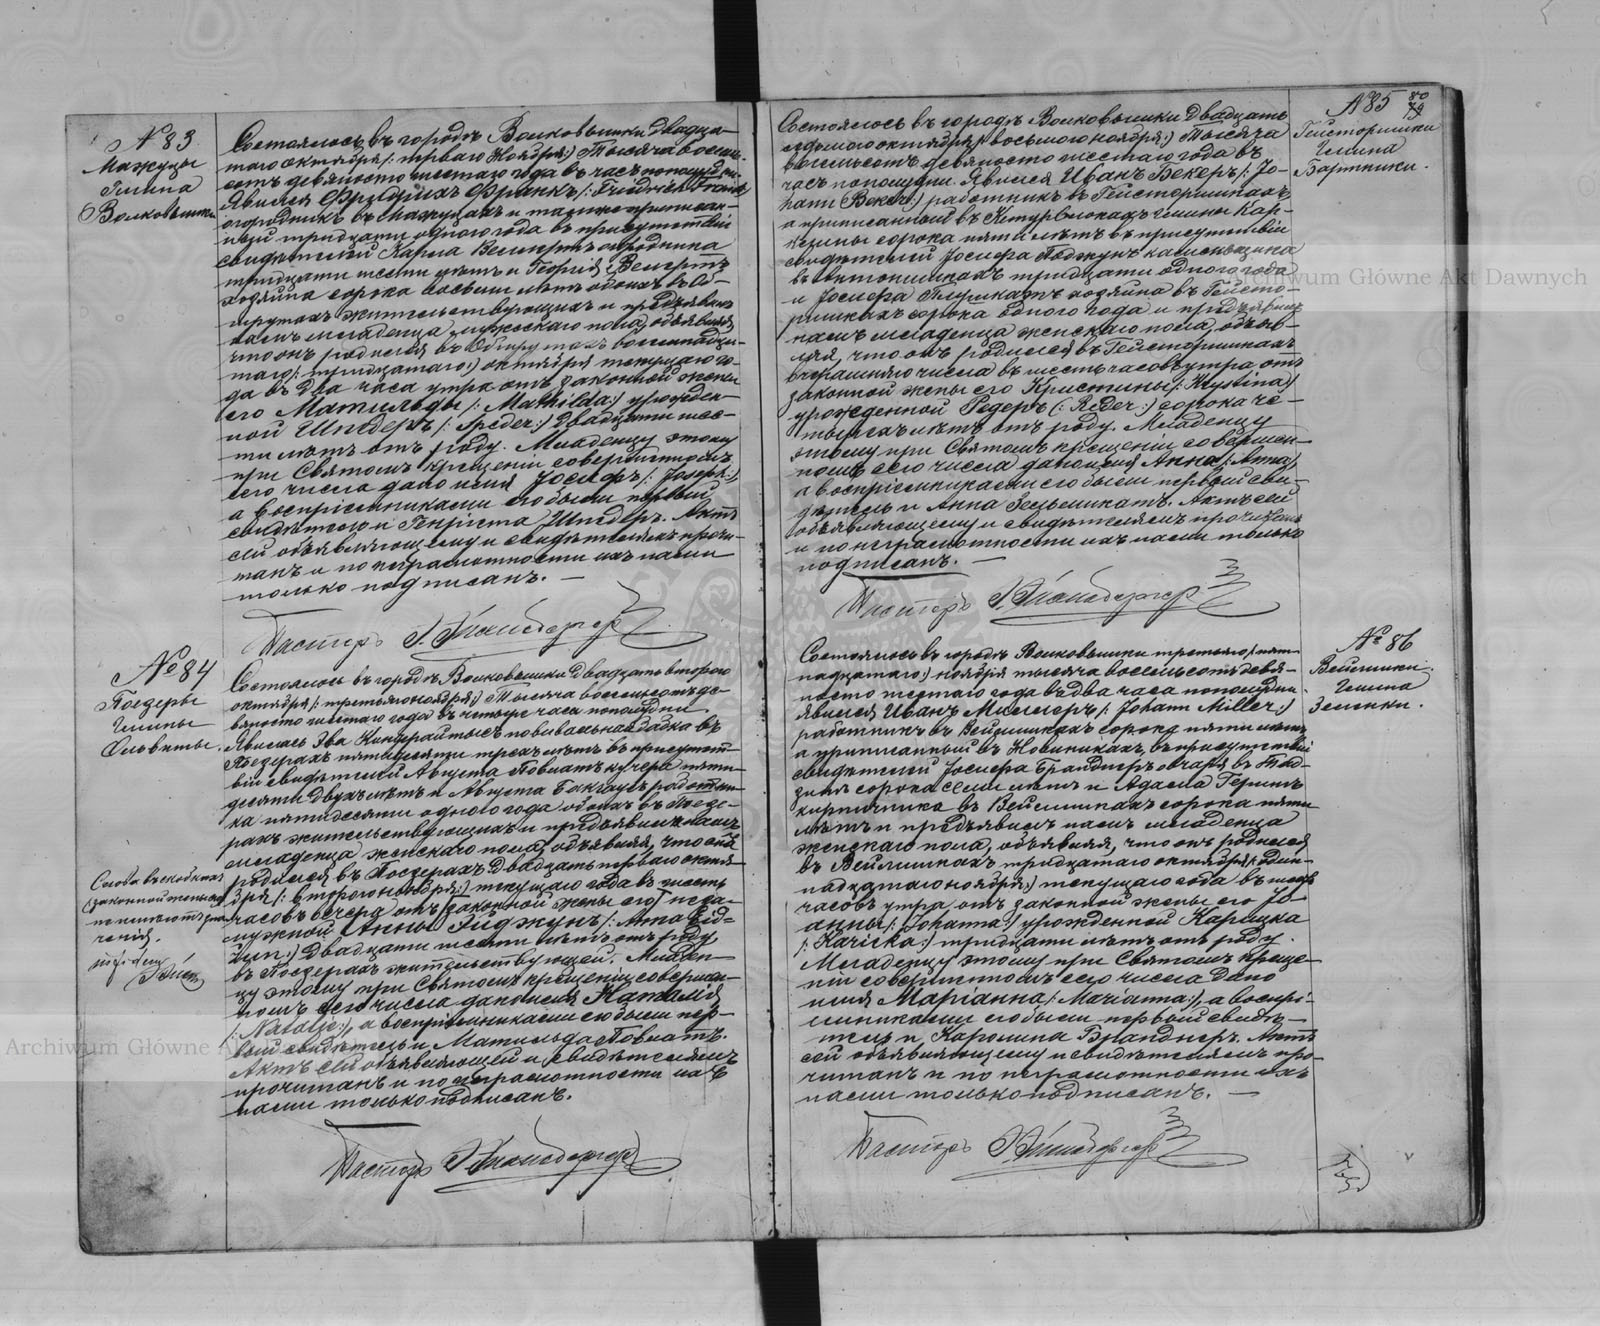 № 83
Мажуцы
Гмина
Волковышки
Состоялось въ городѣ Волковышки двадца-
таго октября /: перваго Ноября:/ Тысяча восемь-
сотъ девяносто шестаго года въ часъ пополудни.
Явился Фридрихъ Франкъ /: Friedrich Frank
огородникъ въ Мажуцахъ и также приписан-
ный тридцати одного года въ присутствіи
свидѣтелей Карла Вейгертъ огородника
тридцати шести лѣтъ и Георгія Вейгертъ
хозяина сорока восьми лѣтъ обоихъ въ Об-
шрутахъ жительствующихъ и предъявилъ
намъ младенца мужескаго пола, объявляя,
что онъ родился въ Обшрутахъ восемнадца-
таго /: тридцатаго:/ октября текущаго го-
да въ два часа утра отъ законной жены
его Матильды /: Mathilda:/ урожден-
ной Шпедеръ /: Speder:/ двадцати шес-
ти лѣтъ отъ роду. Младенцу этому
при Святомъ Крещеніи совершенномъ
сего числа дано имя Іосифъ /: Joseph:/
а воспріемниками его были первый
свидѣтель и Генріета Шпедеръ. Актъ
сей объявляющему и свидѣтелямъ прочи-
танъ и по неграмотности ихъ нами
только подписанъ. —
Пасторъ
№ 84
Поезеры
Гмины
Ольвиты.
Состоялось въ городѣ Волковышки двадцать втораго
октября /: третяго ноября:/ Тысяча восемьсотъ де-
вяносто шестаго года въ четыре часа пополудни
Явилась Эва Кондрайтысъ повивальная бабка въ
Поезерахъ пятидесяти трехъ лѣтъ въ присутст-
віи свидѣтелей Августа Повиатъ кучера пяти-
десяти двухъ лѣтъ и Августа работни-
ка пятидесяти одного года обоихъ въ Поезе-
рахъ жительствующихъ и предъявила намъ
младенца женскаго пола, объявляя, что она
родился въ Поезерахъ двадцать перваго октя-
бря /: втораго ноября:/ текущаго года въ шесть
часовъ вечера отъ [законной жены его] неза-
мужной Анны Эйджунъ /: Anna Eid-
żun:/ двадцати шести лѣтъ отъ роду,
въ Поезерахъ жительствующей. Младен-
цу этому при Святомъ крещеніи совершен-
номъ сего числа дано имя Наталія
/: Natalie:/, а воспріемниками его были пер-
вый свидѣтель и Матильда Повиатъ.
Актъ сей объявляющей и свидѣтелямъ
прочитанъ и по неграмотности ихъ
нами только подписанъ.
Слова въ скобкахъ
[законной жены его]
не имѣютъ зна-
ченія.
Пасторъ
№ 85
80
79
Гейстеришки
Гмина
Бартники.
Состоялось въ городѣ Волковышки двадцать
седьмаго октября /: восьмаго ноября:/ Тысяча
восемьсотъ девяносто шестаго года въ
часъ пополудни. Явился Иванъ Бекеръ /: Jo-
hann Beker:/ работникъ въ Гейстеришкахъ
а приписанный въ гмины Кар-
келины сорока пяти лѣтъ въ присутствіи
свидѣтелей Іосифа каменьщика
въ тридцати одного года
и Іосифа хозяина въ Гейсте-
ришкахъ сорока одного года и предъявилъ
намъ младенца женскаго пола, объяв-
ляя, что онъ родился въ Гейстеришкахъ
вчерашняго числа въ шесть часовъ утра, отъ
законной жены его Христины /: Krystina:/
урожденной Редеръ (: Reder:) сорока че-
тырехъ лѣтъ отъ роду. Младенцу
этому при Святомъ крещеніи совершен-
номъ сего числа дано имя Анна /: Anna:/,
а воспріемниками его были первый сви-
дѣтель и Анна Актъ сей
объявляющему и свидѣтелямъ прочитанъ
и по неграмотности ихъ нами только
подписанъ. —
Пасторъ
№ 86
Вейлишки.
Гмина
Зеленки.
Состоялось въ городѣ Волковышки третьяго /: пят-
надцатаго:/ ноября тысяча восемьсотъ девя-
носто шестаго года въ два часа пополудни.
явился Иванъ Миллеръ /: Johann Miller:/
работникъ въ Вейлишкахъ сорока пяти лѣтъ
а приписанный въ Новиникахъ, въ присутствіи
свидѣтелей Іосифа Бранднеръ овчаря въ
сорока семи лѣтъ и Адама
кирпичника въ Вейлишкахъ сорока пяти
лѣтъ и предъявилъ намъ младенца
женскаго пола, объявляя, что онъ родился
въ Вейлишкахъ тридцатаго октября /: один-
надцатаго ноября:/ текущаго года въ шесть
часовъ утра отъ законной жены его Іо-
анны /: Johanna:/ урожденной Карицка
/: Karicka:/ тридцати лѣтъ отъ роду.
Младенцу этому при Святомъ креще-
ніи совершенномъ сего числа дано
имя Маріанна /: Marianna:/, а воспрі-
емниками его были первый свидѣ-
тель и Каролина Бранднеръ. Актъ
сей объявляющему и свидѣтелямъ про-
читанъ и по неграмотности ихъ
нами только подписанъ. —
Пасторъ
Archiwum Główne Akt Dawnych
Archiwum Główne Akt Dawnych
Archiwum Główne Akt Dawnych